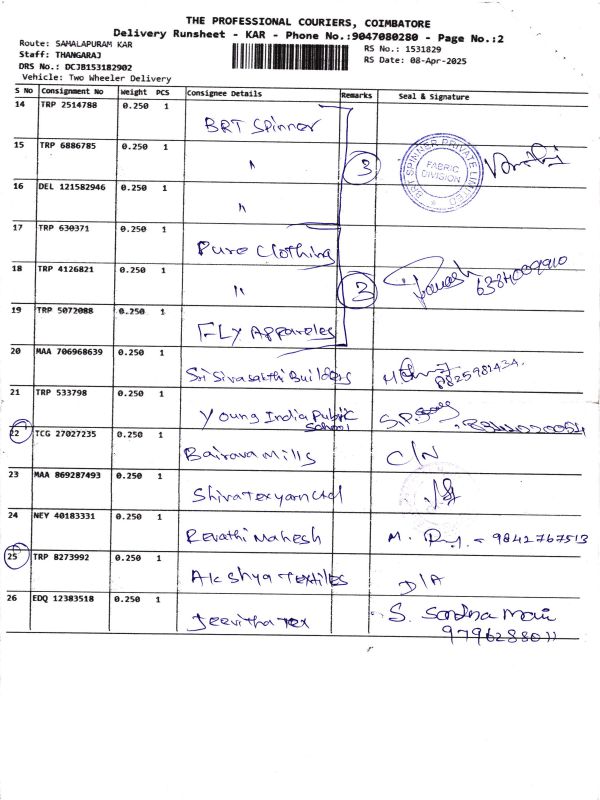 THE PROFESSIONAL COURIERS, COIMBATORE
Delivery Runsheet - KAR - Phone No.:9047080280 - Page No.:2
Route: SAMALAPURAM KAR
RS No.: 1531829
Staff: THANGARAJ
RS Date: 08-Apr-2025
DRS No.: DCJB153182902
Vehicle: Two Wheeler Delivery
S No Consignment No Weight PCS Consignee Details Remarks Seal & Signature
14 TRP 2514788 0.250 1 BRT Spinner
15 TRP 6886785 0.250 1 " 3
BRT SPINNER PRIVATE LIMITED
FABRIC DIVISION
16 DEL 121582946 0.250 1 "
17 TRP 630371 0.250 1 Pure Clothing
18 TRP 4126821 0.250 1 " 3
19 TRP 5072088 0.250 1 FLY Appareles
20 MAA 706968639 0.250 1 Sri Sivasakthi Builders
21 TRP 533798 0.250 1 Young India Public School
22 TCG 27027235 0.250 1 Bairava Mills C/N
23 MAA 869287493 0.250 1 Shiva Texyarn Ltd
24 NEY 40183331 0.250 1 Revathi Mahesh M. 9842767513
25 TRP 8273992 0.250 1 Akshya Textiles D/A
26 EDQ 12383518 0.250 1 Jeevitha Tex S.
9796288011